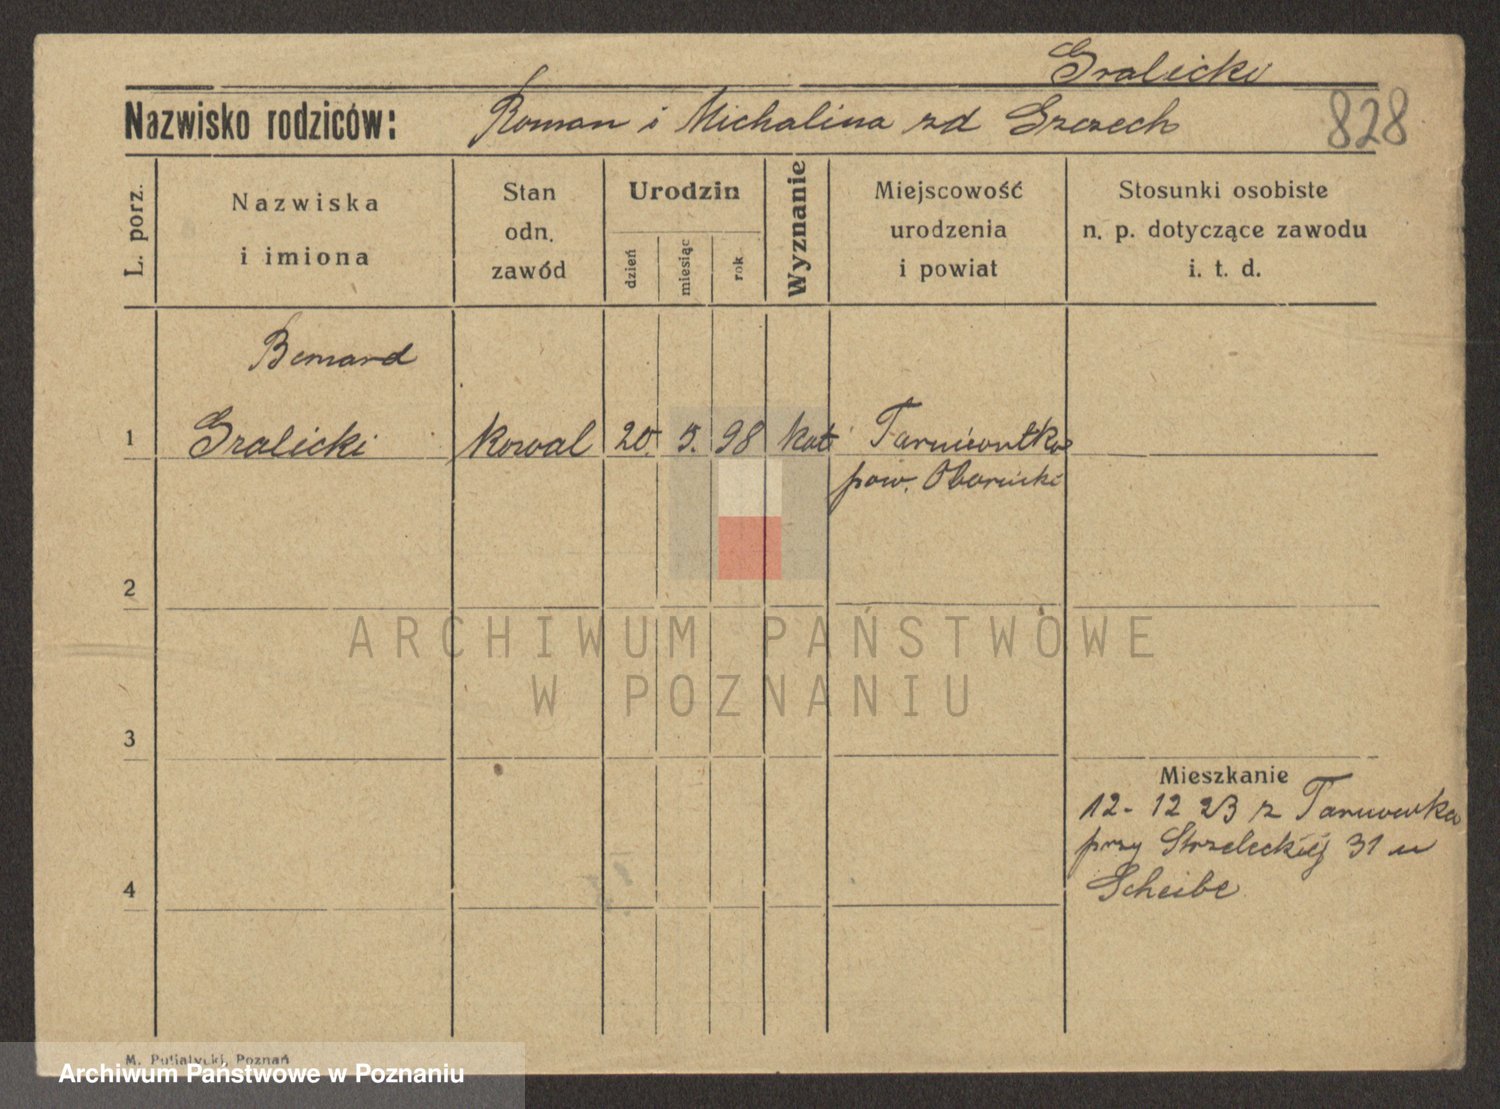 Gralicki
Nazwisko rodziców: Roman i Michalina zd Szczech
828
L. porz.
Nazwiska
i imiona
Stan
odn.
zawód
Urodzin
dzień
miesiąc
rok
Wyznanie
Miejscowość
urodzenia
i powiat
Stosunki osobiste
n. p. dotyczące zawodu
i. t. d.
Bernard
1 Gralicki kowal 20. 5. 98 kat
pow. Obornicki
2
3
Mieszkanie
12-12 23 z Tarnowka
przy Strzeleckiej 31 u
Scheibe
4
M. Putiatycki, Poznań
ARCHIWUM PAŃSTWOWE
W POZNANIU
Archiwum Państwowe w Poznaniu